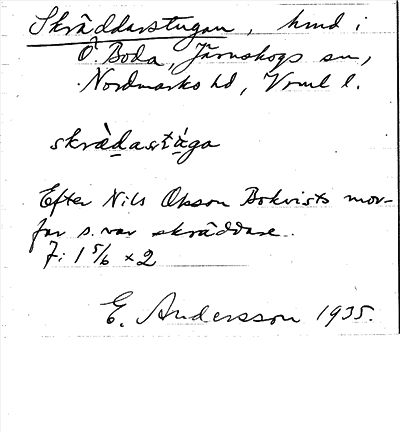 Skräddarstugan, hmd i
Ö. Boda, Järnskogs sn,
Nordmarks hd, Vrml l.
skrädastäga
Efter Nils Olsson Bokvists mor-
far s. var skräddare.
J: 1 5/6 x 2
E. Andersson 1935.